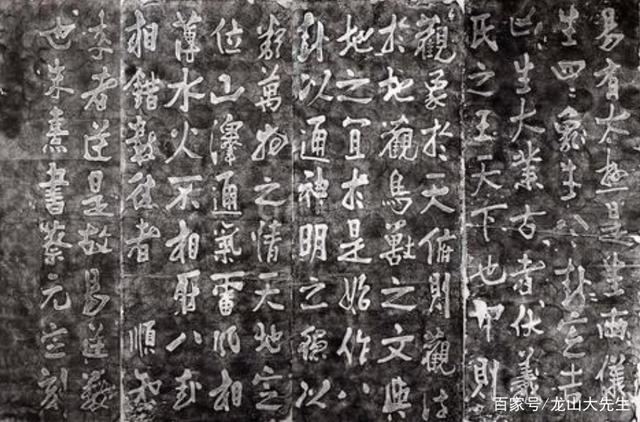 易有太極是生兩儀
生四〻象生八卦定吉
凶生大業古者伏羲
氏之王天下也仰則
觀象於天俯則觀法
於地觀鳥獸之文與
地之宜於是始作八
卦以通神明之德以
類萬物之情天地定
位山澤通氣雷風相
薄水火不相射八卦
相錯數往者順知
來者逆是故易逆數
也朱熹書蔡元定刻
百家号/龙山大先生